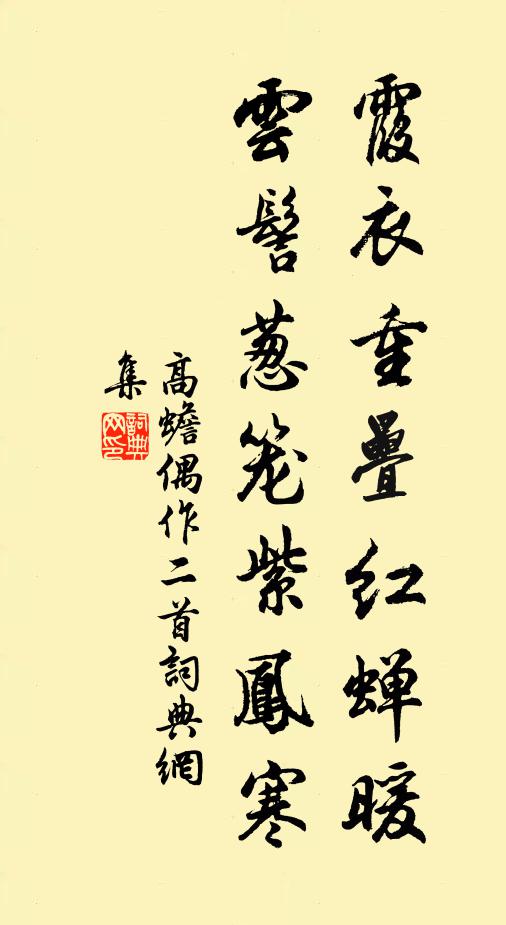 霞衣重疊红蝉暖
雲髻葱笼紫鳳寒
高蟾偶作二首詞典網
集
詞典网印